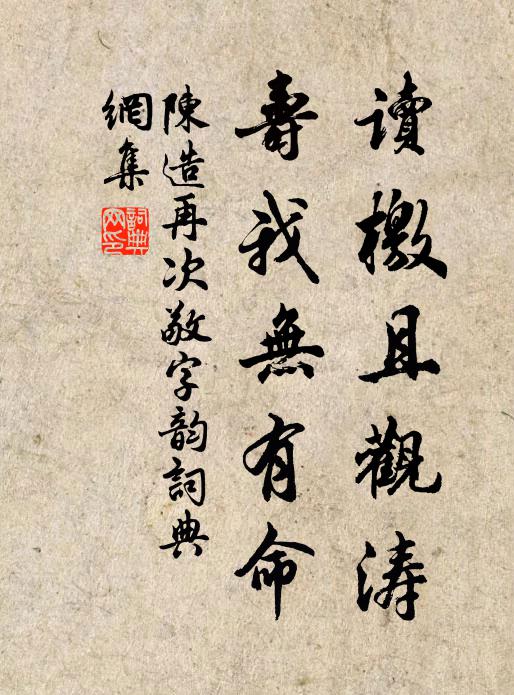 讀檄且觀濤
壽我無有命
陳造再次敬字韵詞典
網集
詞典網印